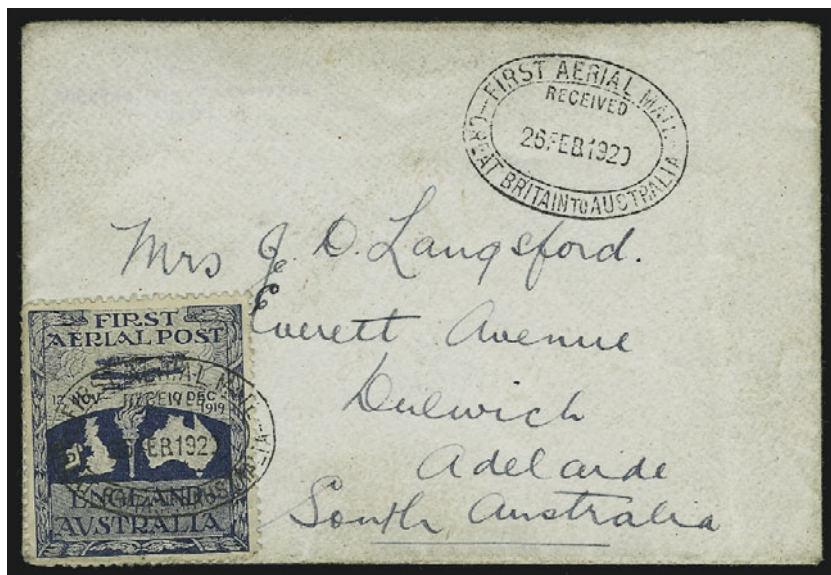 FIRST AERIAL MAIL
RECEIVED
26 FEB 1920
GREAT BRITAIN TO AUSTRALIA
Mrs J. D. Langsford.
Everett Avenue
Dulwich
Adelaide
South Australia
FIRST
AERIAL POST
12 NOV– DEC
1919
FEB 1920
ENGLAND
AVSTRALIA